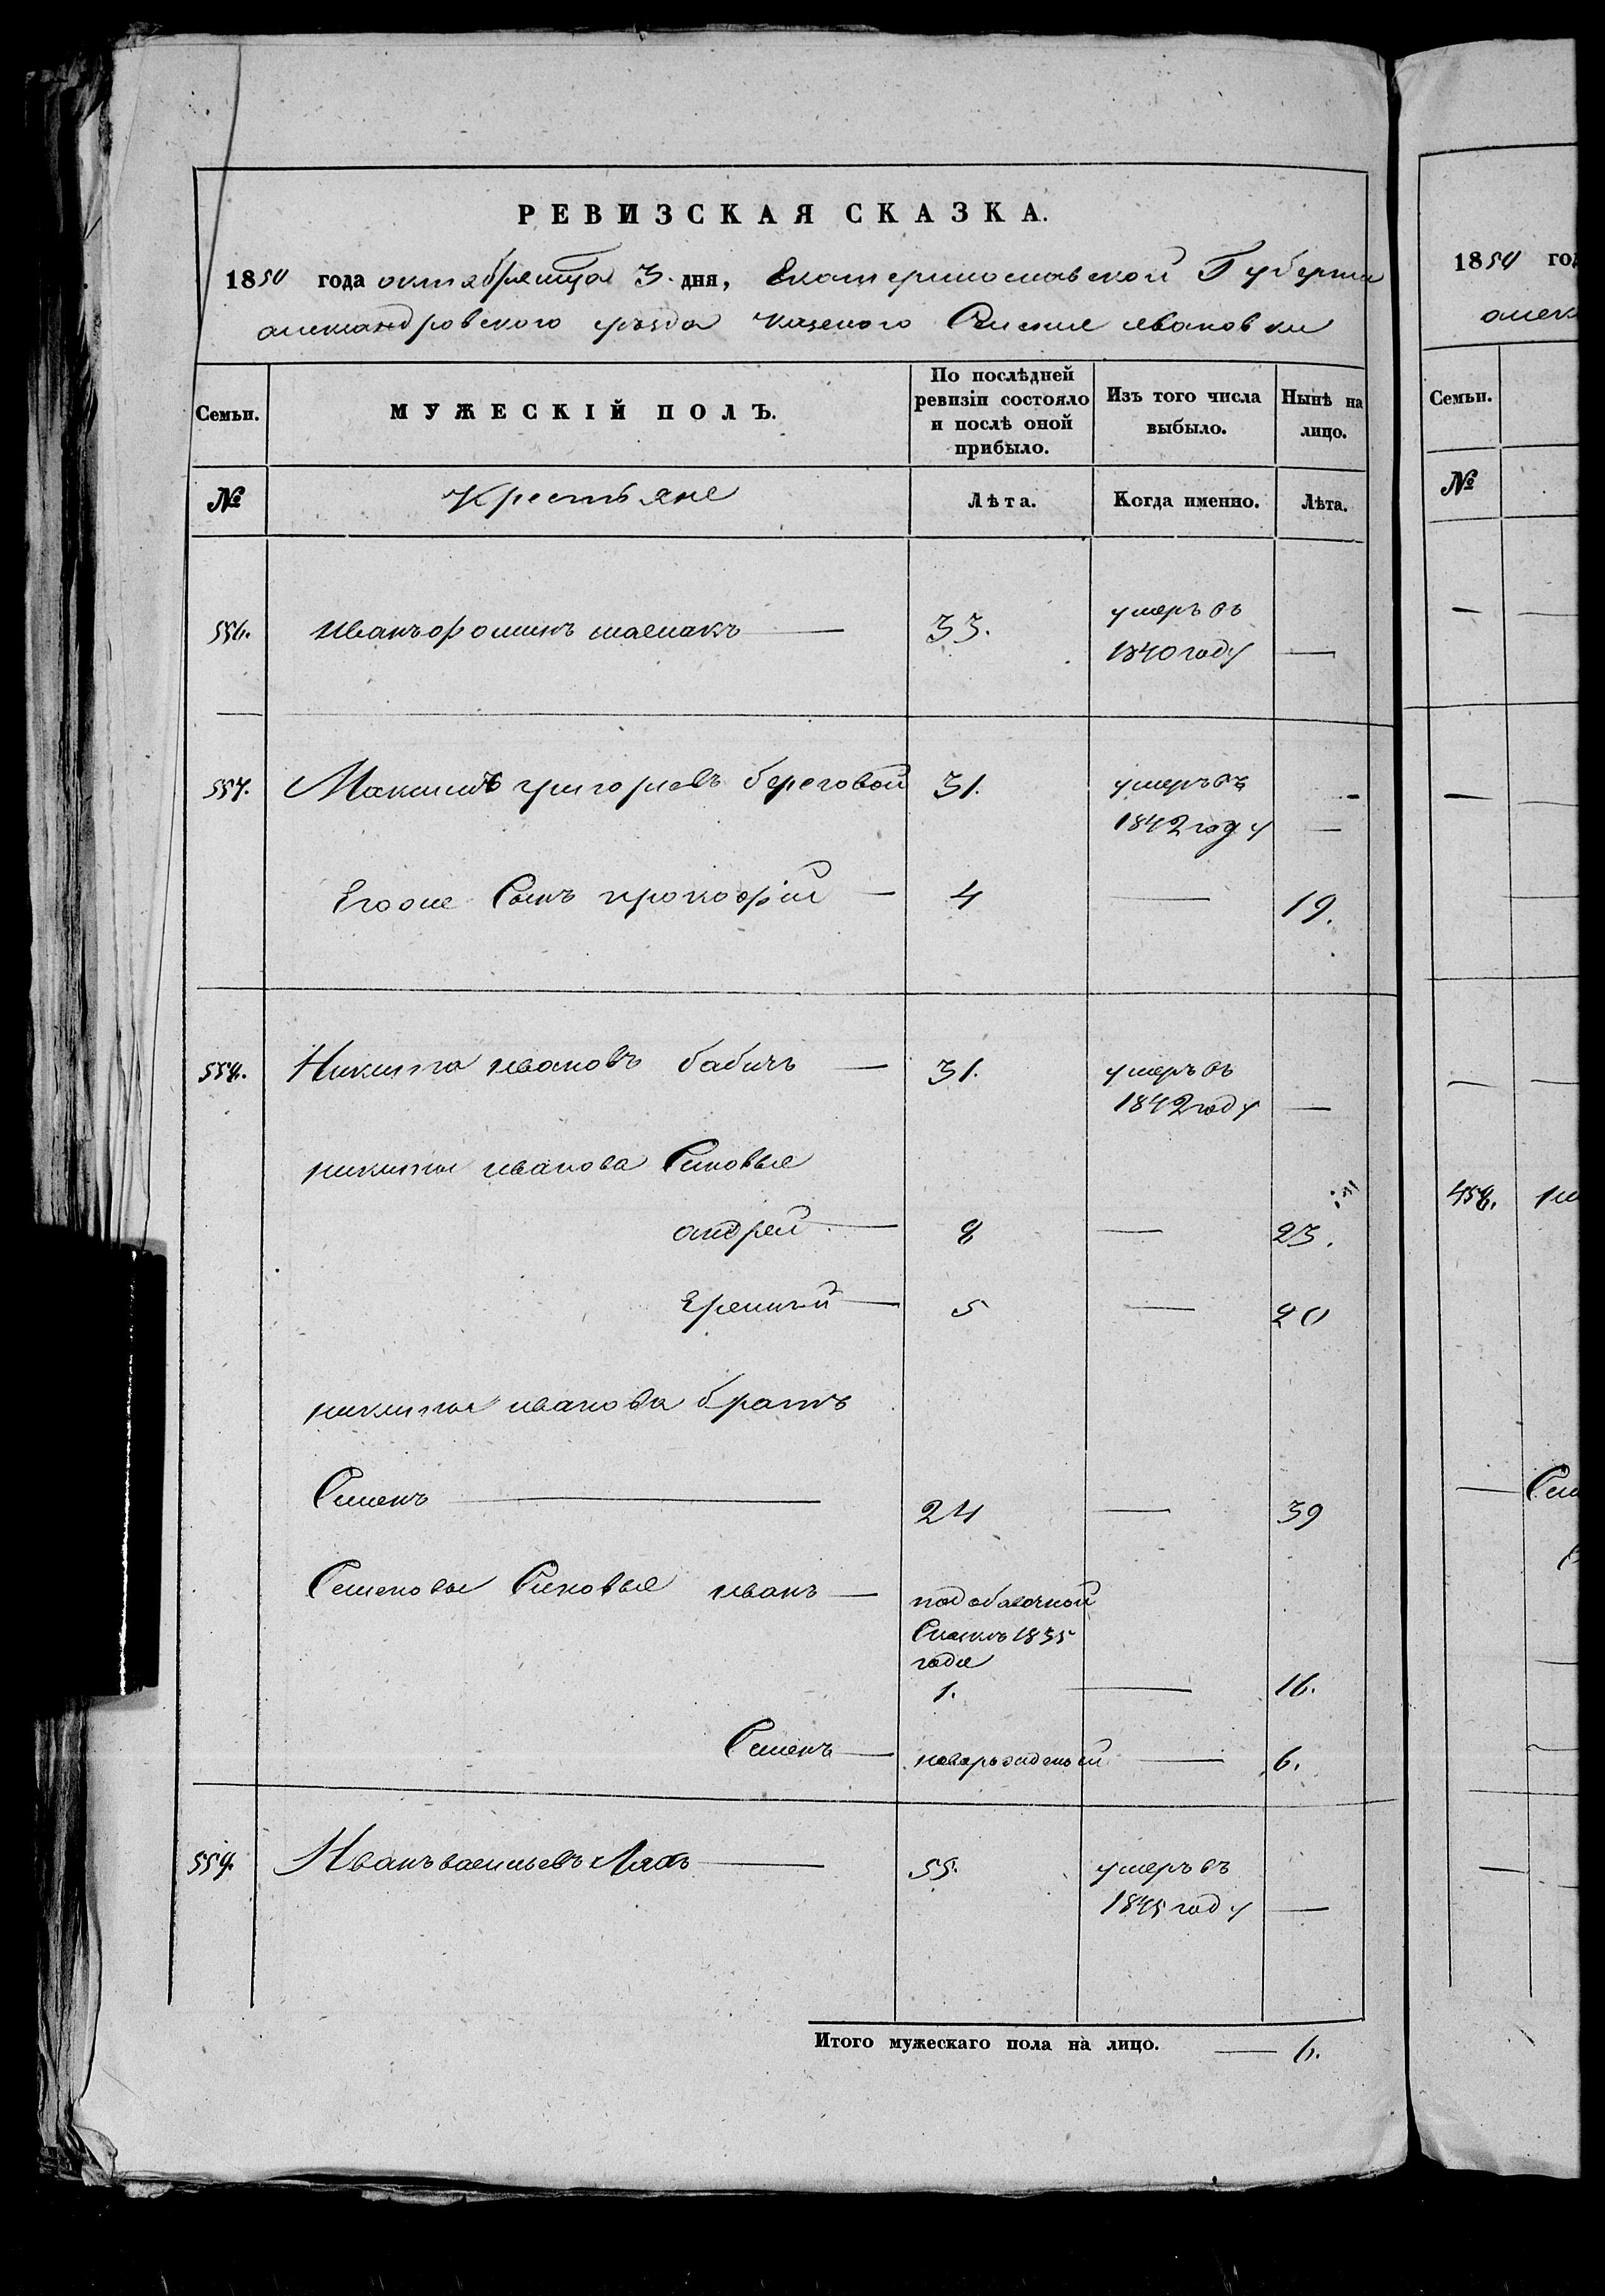 РЕВИЗСКАЯ СКАЗКА.
1850 года октября месяца 3. дня, Екатеринославской Губернии
александровского уезда казеного Селение ивановки
Семьи.
МУЖЕСКІЙ ПОЛЪ.
По послѣдней ревизіи состояло и послѣ оной прибыло.
Изъ того числа выбыло.
Нынѣ на лицо.
№
Крестьяне
Лѣта.
Когда именно.
Лѣта.
556. иванъ фоминъ 33. умеръ въ
1840 году —
557. Максимъ григорьевъ береговой 31. умеръ въ
1842 году —
Егооже Сынъ прокофій — 4 — 19.
558. Никита ивановъ бабичъ — 31. умеръ въ
1842 году —
никиты иванова Сыновья
андрей — 8 — 23.
Еремий — 5 — 20
никиты иванова братъ
Семенъ — 24 — 39
Семеновы Сыновья иванъ — подобавочной
Сказкъ 1835
года
1. — 16.
Семенъ — новорожденый — 6.
559. Иванъ васильевъ Ляхъ — 55. умеръ въ
1845 году —
Итого мужескаго пола на лицо. — 6.
1850 год
алек
Семьи.
№
458.
Сем